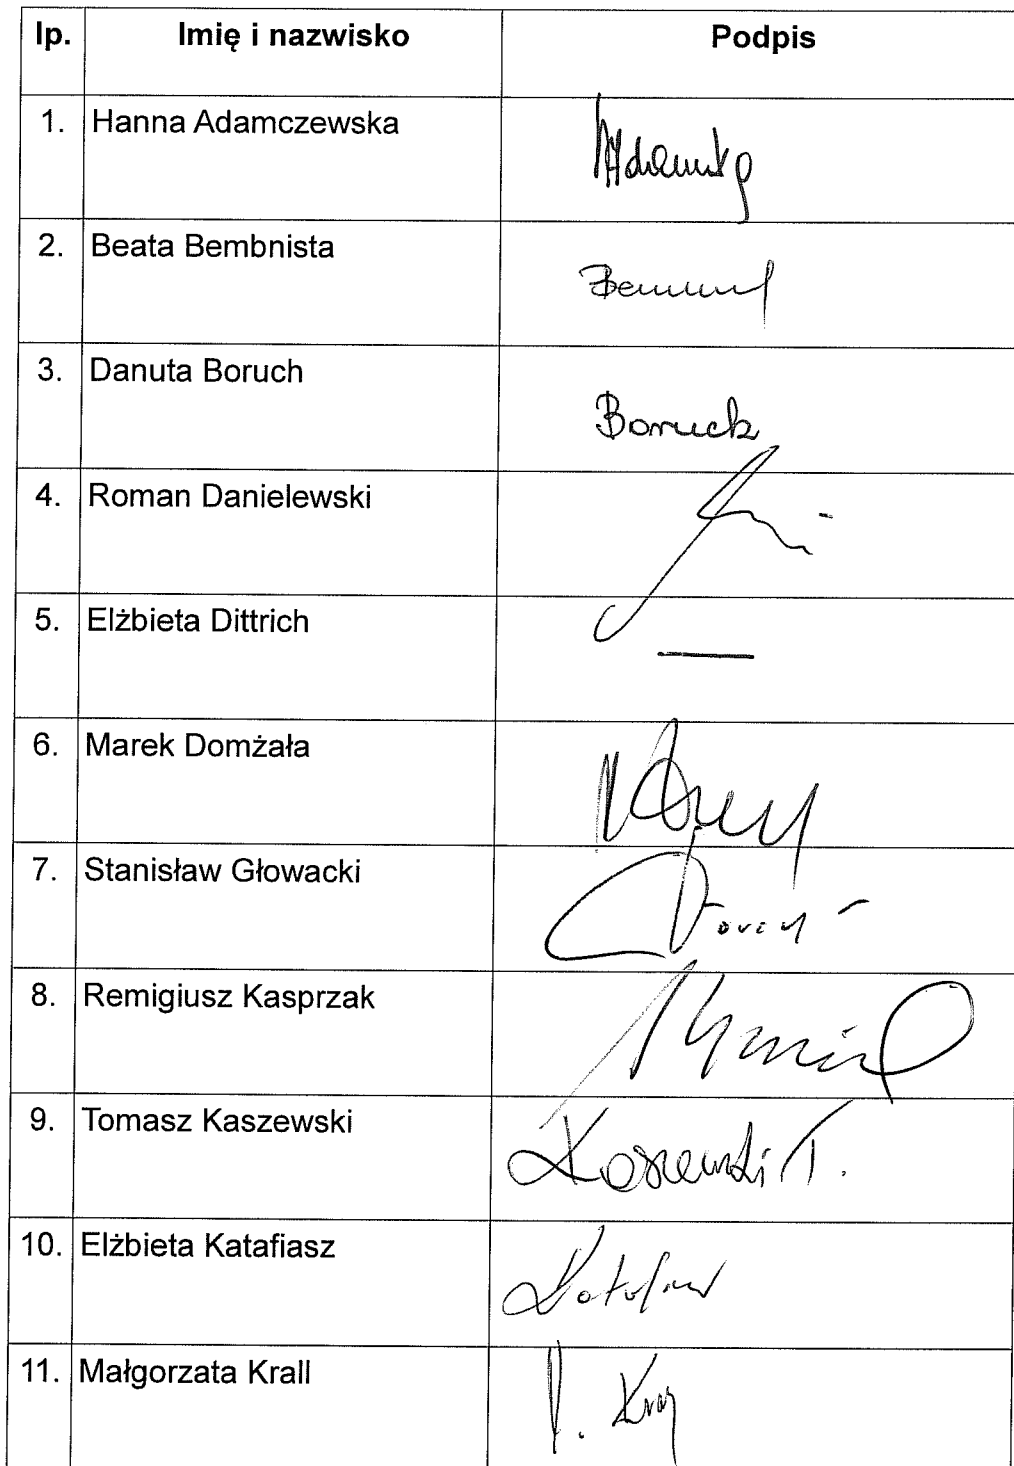 lp. Imię i nazwisko Podpis
1. Hanna Adamczewska
2. Beata Bembnista
3. Danuta Boruch Boruch
4. Roman Danielewski
5. Elżbieta Dittrich —
6. Marek Domżała
7. Stanisław Głowacki
8. Remigiusz Kasprzak
9. Tomasz Kaszewski Kaszewski T.
10. Elżbieta Katafiasz
11. Małgorzata Krall